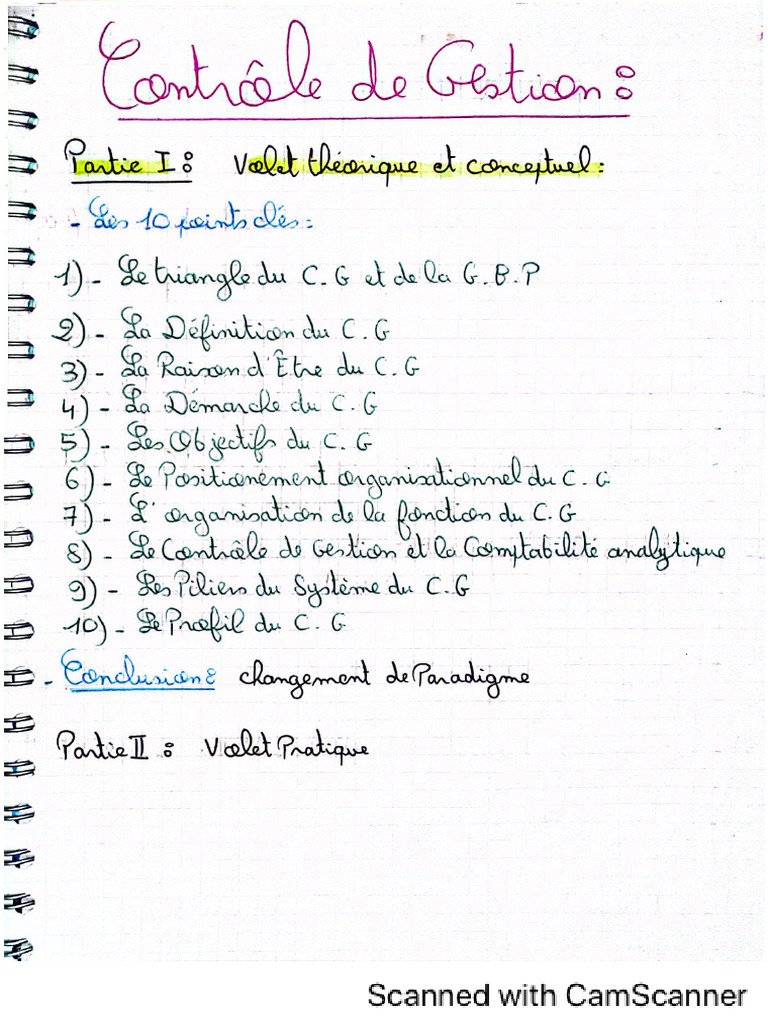 Contrôle de Gestion :
Partie I : Volet théorique et conceptuel :
- Les 10 points clés :
1) - Le triangle du C.G et de la G.B.P
2) - La Définition du C.G
3) - La Raison d'Être du C.G
4) - La Démarche du C.G
5) - Les Objectifs du C.G
6) - Le Positionement organisationnel du C.G
7) - L'organisation de la fonction du C.G
8) - Le Contrôle de Gestion et la Comptabilité analytique
9) - Les Piliers du Système du C.G
10) - Le Profil du C.G
- Conclusion : changement de Paradigme
Partie II : Volet Pratique
Scanned with CamScanner